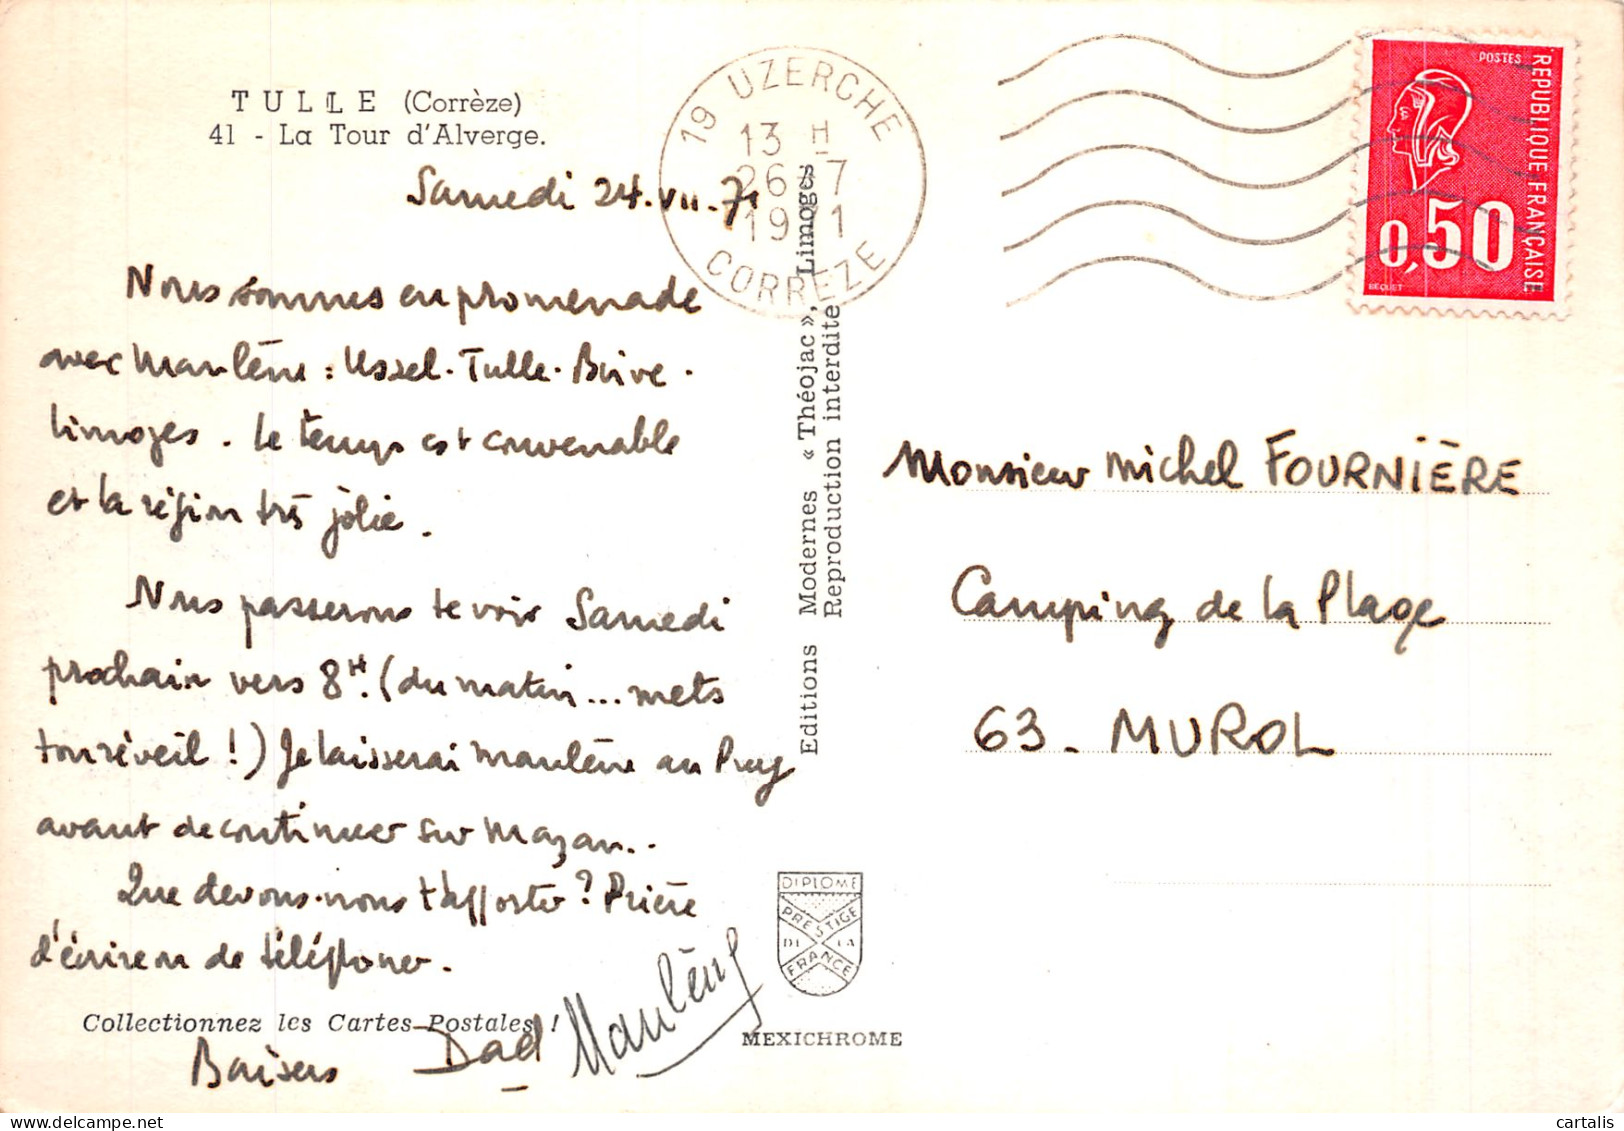 TULLE (Corrèze)
41 - La Tour d'Alverge.
Samedi 24.VII.71
Nous sommes en promenade
avec Marlène : Ussel. Tulle. Brive.
Limoges. Le temps est convenable
et la région très jolie.
Nous passerons te voir Samedi
prochain vers 8H. (du matin... mets
ton réveil !) Je laisserai Marlène au Puy
avant de continuer sur Mazan..
Que devons-nous t'apporter ? Prière
d'écrire ou de téléphoner.
Collectionnez les Cartes Postales !
Baisers Dad Marlène
Editions Modernes « Théojac », Limoges
Reproduction interdite
DIPLOME
PRESTIGE
DE LA
FRANCE
MEXICHROME
19 UZERCHE
13 H
26 - 7
1971
CORREZE
POSTES
REPUBLIQUE FRANÇAISE
0,50
BEQUET
Monsieur Michel FOURNIÈRE
Camping de la Plage
63 - MUROL
cartalis